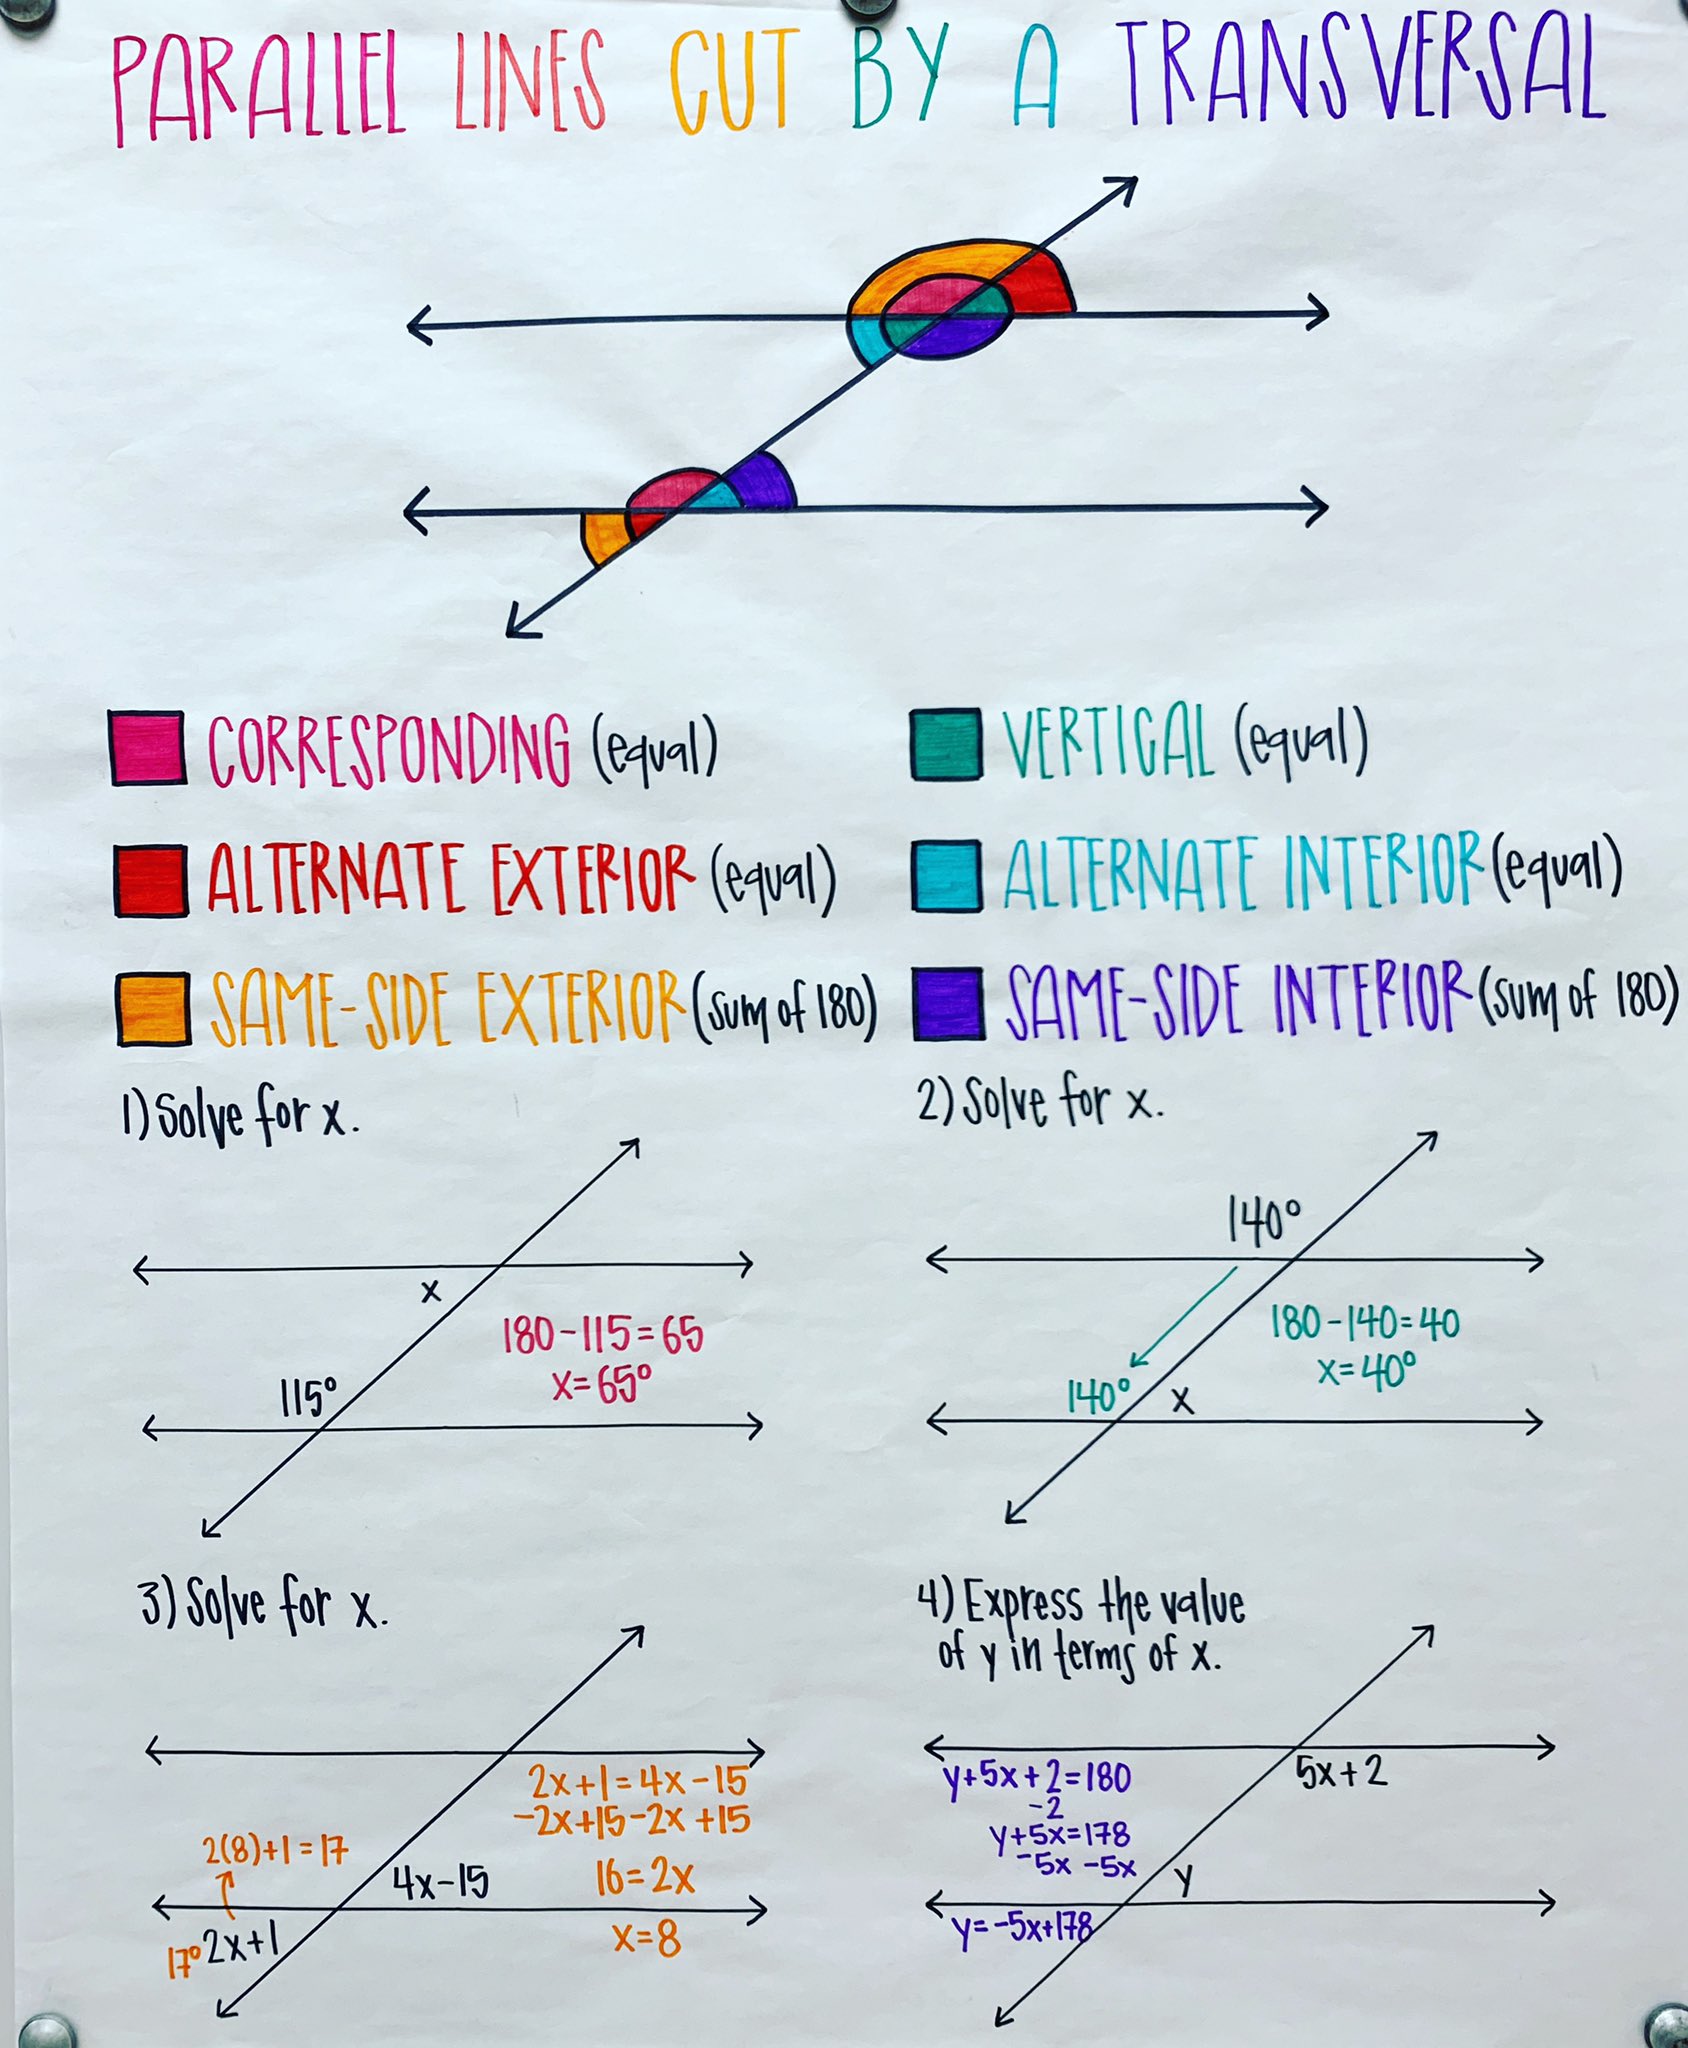 PARALLEL LINES CUT BY A TRANSVERSAL
CORRESPONDING (equal)
VERTICAL (equal)
ALTERNATE EXTERIOR (equal)
ALTERNATE INTERIOR (equal)
SAME-SIDE EXTERIOR (sum of 180)
SAME-SIDE INTERIOR (sum of 180)
1) Solve for x.
x
180-115=65
x=65°
115°
2) Solve for x.
140°
180-140=40
x=40°
140°
x
3) Solve for x.
2x+1=4x-15
-2x+15-2x+15
2(8)+1=17
4x-15
16=2x
17° 2x+1
x=8
4) Express the value
of y in terms of x.
y+5x+2=180
5x+2
-2
y+5x=178
-5x -5x
y
y=-5x+178